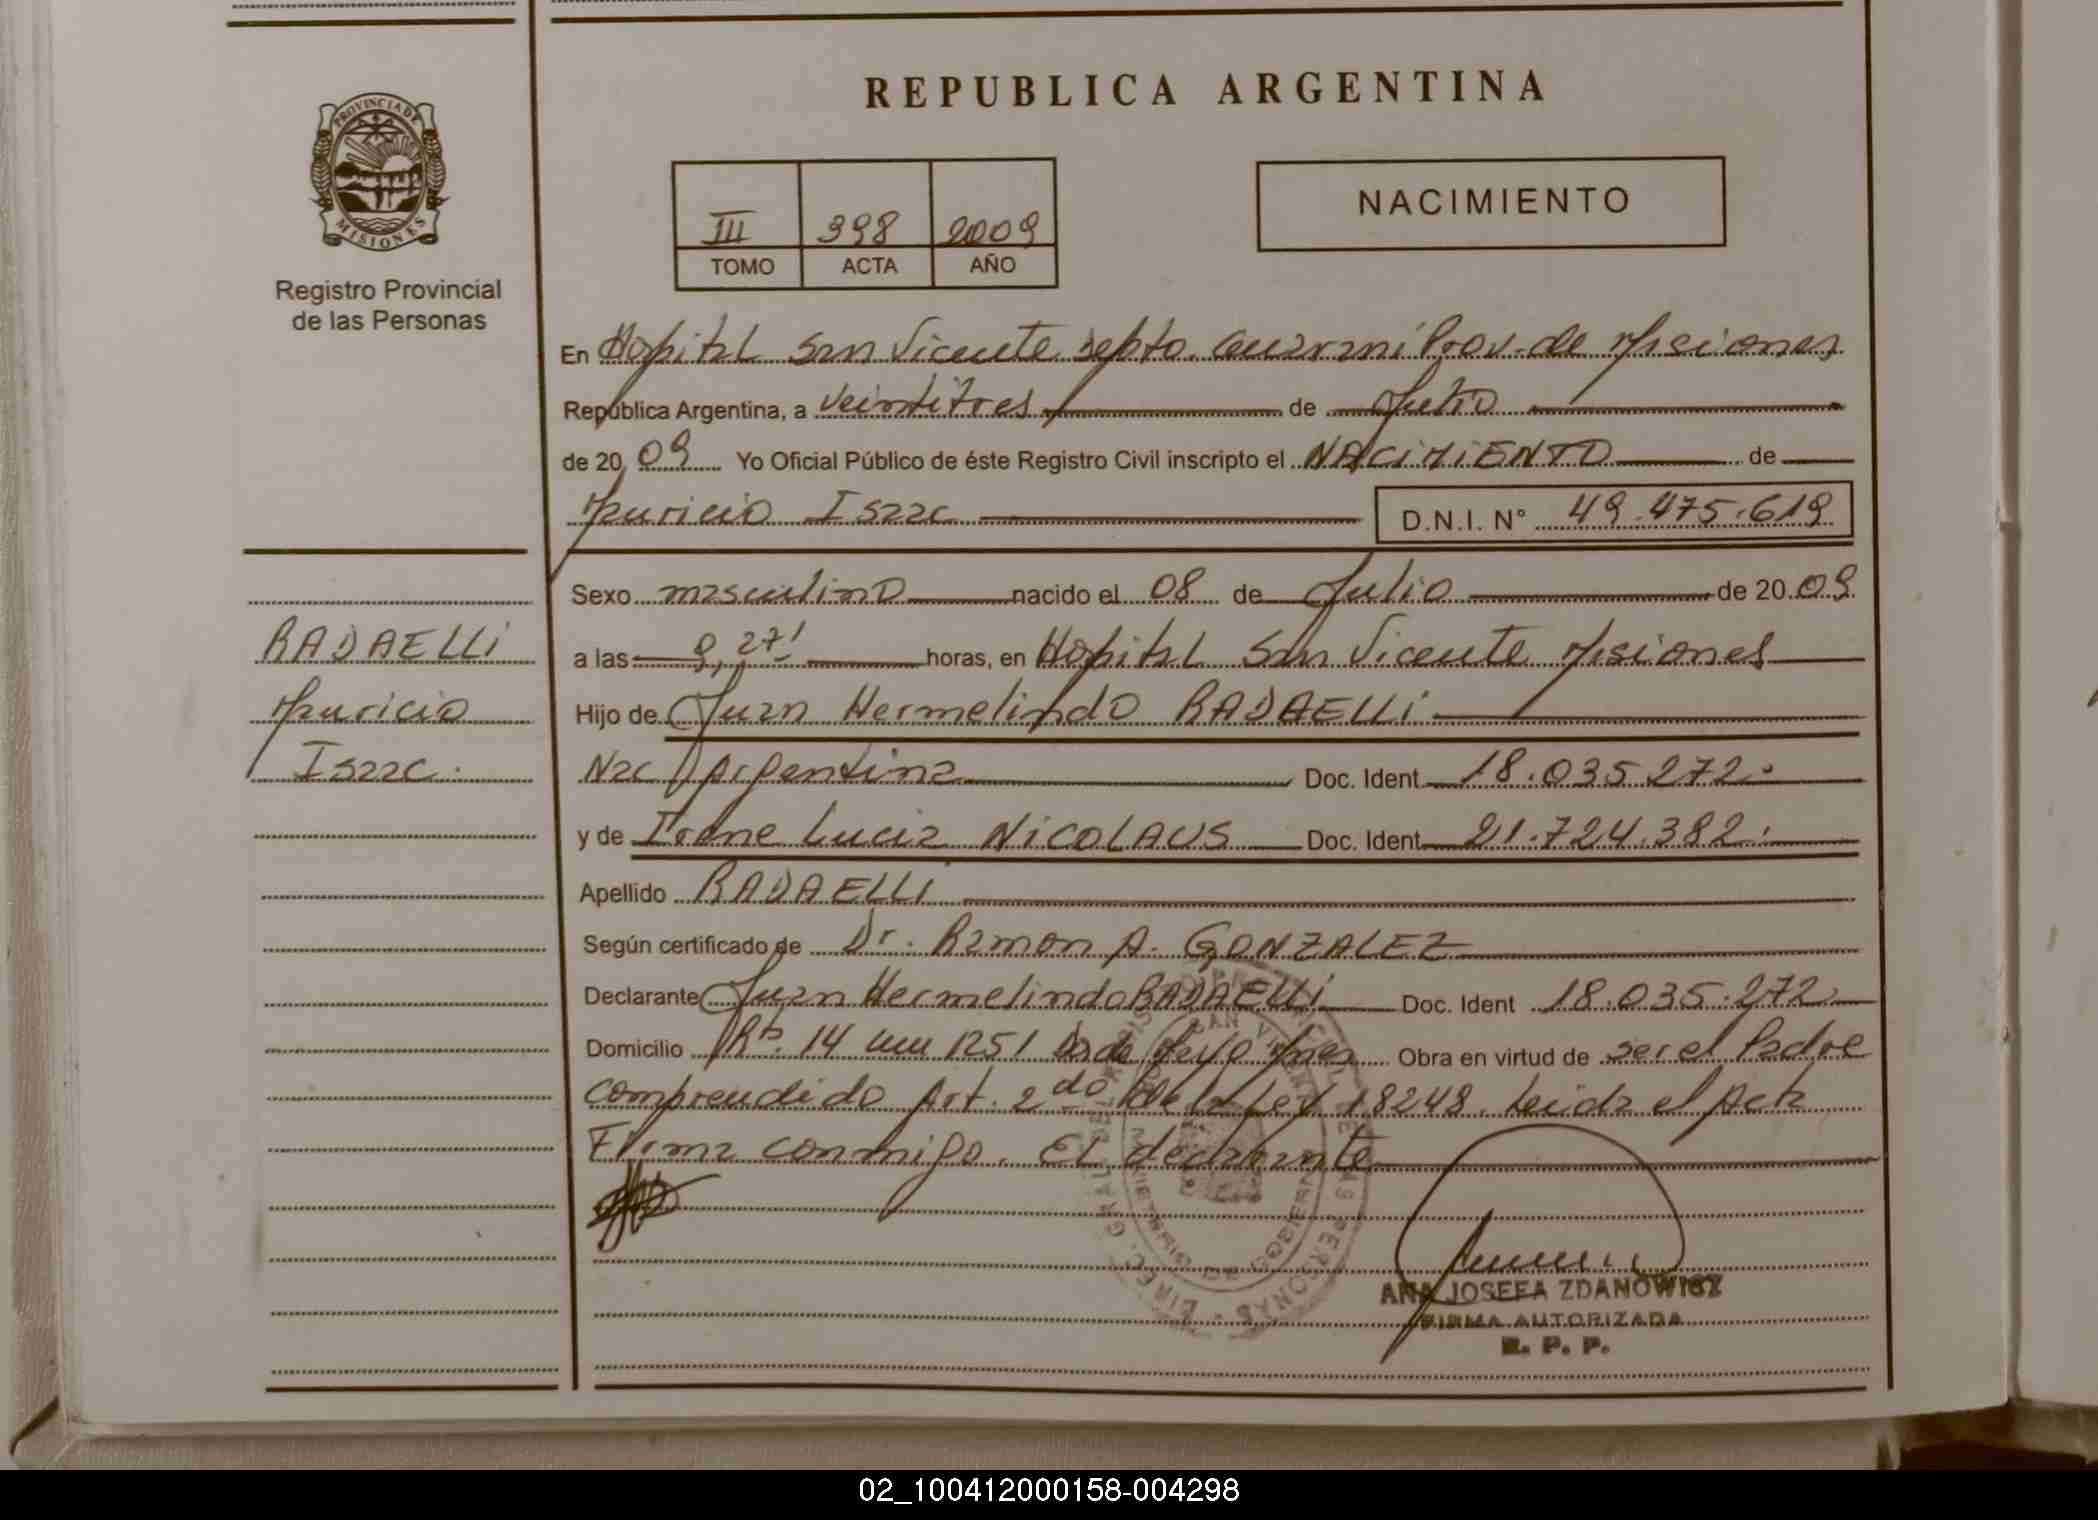 PROVINCIA DE
MISIONES
Registro Provincial
de las Personas
RADAELLI
Mauricio
Isaac.
REPUBLICA ARGENTINA
III 398 2009
TOMO ACTA AÑO
NACIMIENTO
En Hospital San Vicente Depto. Guarani Prov. de Misiones
República Argentina, a veintitres de Julio
de 2009 Yo Oficial Público de éste Registro Civil inscripto el NACIMIENTO de
Mauricio Isaac D.N.I. N° 49.475.619
Sexo masculino nacido el 08 de Julio de 2009
a las 9,27' horas, en Hospital San Vicente Misiones
Hijo de Juan Hermelindo RADAELLI
Nac Argentina Doc. Ident 18.035.272.
y de Irene Lucia NICOLAUS Doc. Ident 21.724.382.
Apellido RADAELLI
Según certificado de Dr. Ramon A. GONZALEZ
Declarante Juan Hermelindo RADAELLI Doc. Ident 18.035.272
Domicilio Rta. 14 km 1251 Dos de Mayo Mnes Obra en virtud de ser el Padre
comprendido Art. 2do de la Ley 18248. Leida el Acta
Firma conmigo. El declarante
ANA JOSEFA ZDANOWICZ
FIRMA AUTORIZADA
R. P. P.
02_100412000158-004298